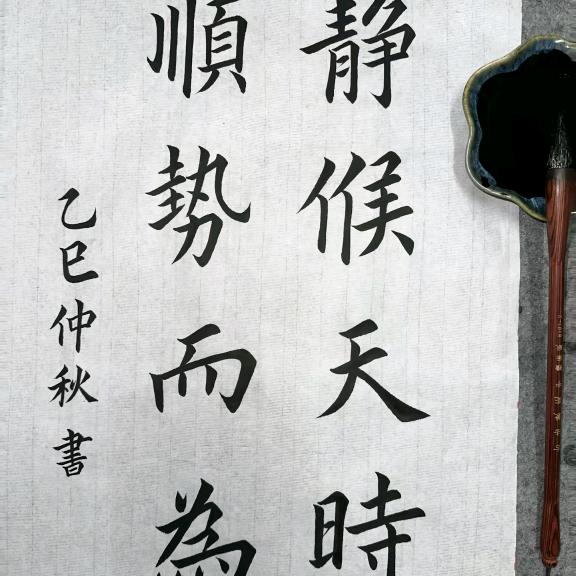 静候天時
順勢而為
乙巳仲秋書